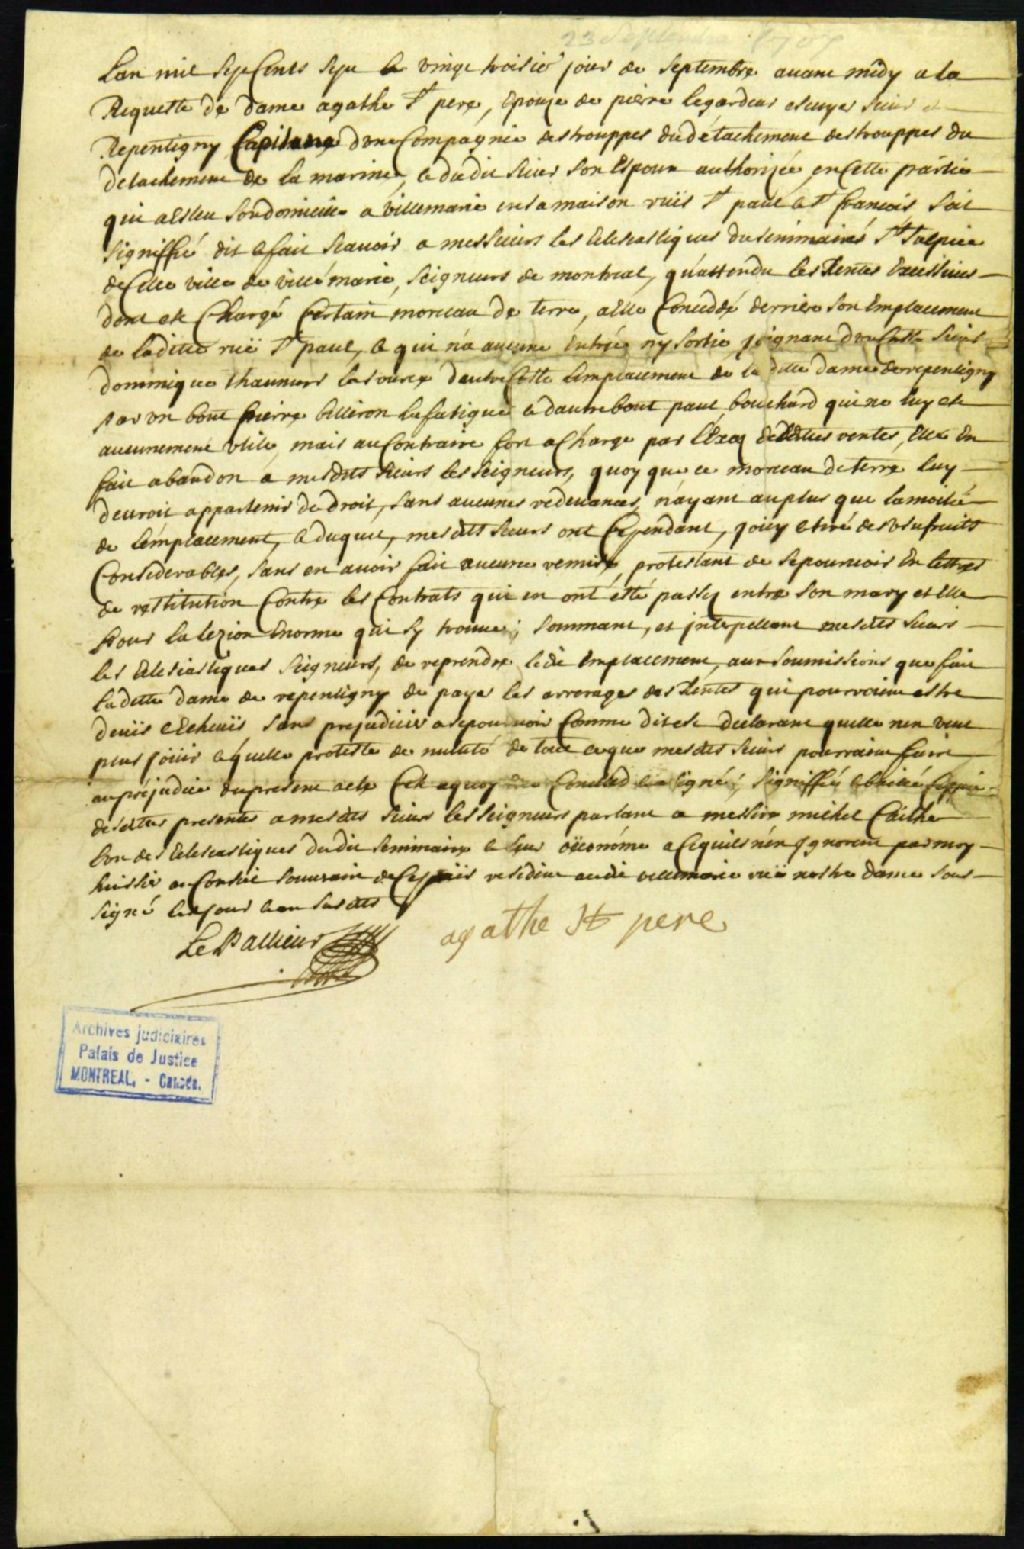 23 Septembre 1707
Lan mil Sept Cents Sept le vingt troisie jour de Septembre avant midy a la
Requeste de dame agathe St pere, Epouze de pierre legardeur escuyer Sieur de
Repentigny Capitaine dune Compagnie des trouppes du détachement des trouppes du
détachement de la marine, et dudit Sieur Son Espoux authorizée en Cette partie
qui a Esleu Son domicille a villemarie en sa maison rüe St paul et St francois Soit
Signiffié dit et fait Scavoir a messieurs les Eclesiastiques du seminaire St Sulpice
de Cette ville de villemarie, Seigneurs de montreal, qu'attendu les Rentes Excessives
dont est Chargé Certain morceau de terre, a Elle Concedé derriere Son Emplacement
de laditte rüe St paul, et qui n'a aucune Entrée ny Sortie joignant d'un Costé Sieur
dominique thaumurs lasource d'autre Costé L'emplacement de la ditte dame de repentigny
par un bout pierre billeron Lafatigue et dautre bout paul bouchard qui ne luy est
aucunement utile, mais au Contraire fort a Charge par l'Exces desdittes rentes, Elle En
fait abandon a mesdits Sieurs les Seigneurs, quoy que ce morceau de terre luy
devroit appartenir de droit, Sans aucunes redevances, n'ayant au plus que la moitié
de l'emplacement, et duquel, mesdits Sieurs ont Cependant, jouy et tiré des usufruits
Considerables, Sans en avoir fait aucune remise, protestant de se pourvoir En lettres
de restitution Contre les Contrats qui en ont été passés entre Son mary et Elle
pour la lezion Enorme qui Sy trouve; Sommant, et jnterpellant mesdits Sieurs
les Eclesiastiques Seigneurs, de reprendre ledit Emplacement, aux Soumissions que fait
Laditte dame de repentigny de payer les arrerages des Rentes qui pourroient estre
deües et Echeües Sans prejudicier a se pourvoir Comme dit est declarant quelle nen veut
plus joüir et quelle proteste de nullité de tout ce que mesdits Sieurs pourroient faire
au prejudice du present acte Cest a quoy Conclud et a Signé; Signiffié et baillé Coppie
desdittes presentes a mesdits Sieurs les Seigneurs parlant a messire michel Caithe
l'un des Eclesiastiques dudit Seminaire et leur oëconome a Ce quils nen jgnorent par moy
huissier au Conseil Souverain de Ce païs resident audit villemarie rüe nostre dame Sous
Signé les jour et an Susdits
Le Pallieur agathe St pere
Archives judiciaires
Palais de Justice
MONTREAL. - Canada.